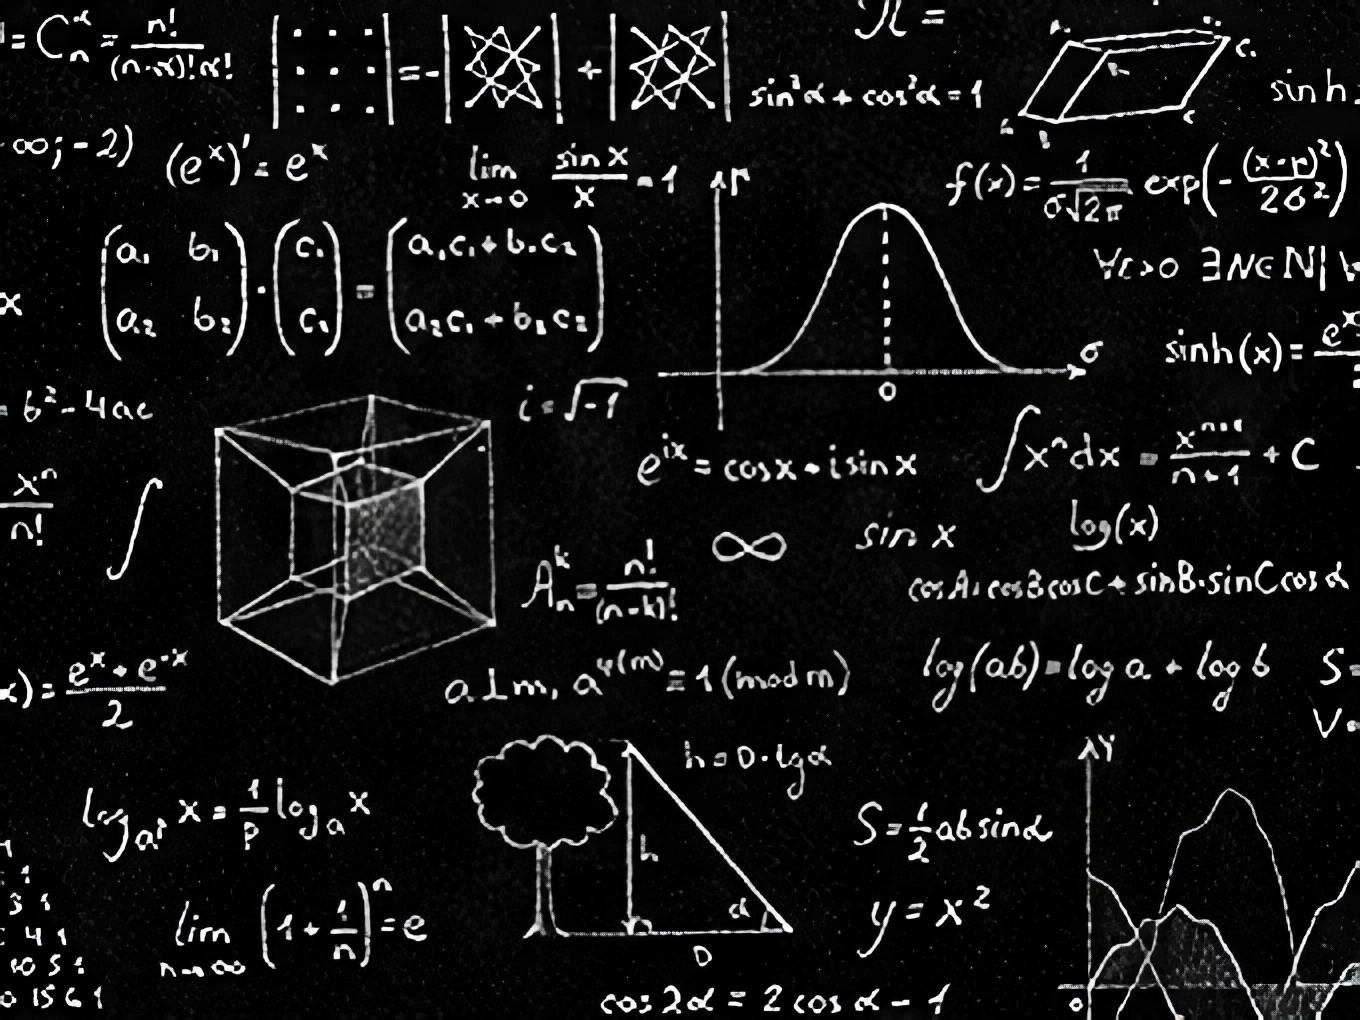 = C_n^α = n!/(n-α)!α!
sin²α + cos²α = 1
sinh
∞; -2)
(e^x)' = e^x
lim x→0 sin x / x = 1
f(x) = 1/(σ√2π) exp(-(x-μ)²/2σ²)
(a₁ b₁ a₂ b₂) · (c₁ c₂) = (a₁c₁ + b₁c₂ a₂c₁ + b₂c₂)
∀ε>0 ∃N∈N|
sinh(x) = e^x
σ
0
= b² - 4ac
i = √-1
e^ix = cos x + i sin x
∫x^n dx = x^(n+1)/(n+1) + C
x^n/n!
∫
∞
sin x
log(x)
A_n^k = n!/(n-k)!
cos A = cos B cos C + sin B · sin C cos α
x) = (e^x + e^-x)/2
a ⊥ m, a^φ(m) ≡ 1 (mod m)
log(ab) = log a + log b
S =
V =
h = D · tg α
Y
log_a^p x = 1/p log_a x
h
α
D
S = 1/2 ab sin α
y = x²
lim n→∞ (1 + 1/n)^n = e
4 1
10 5 1
15 6 1
cos 2α = 2 cos α - 1
0